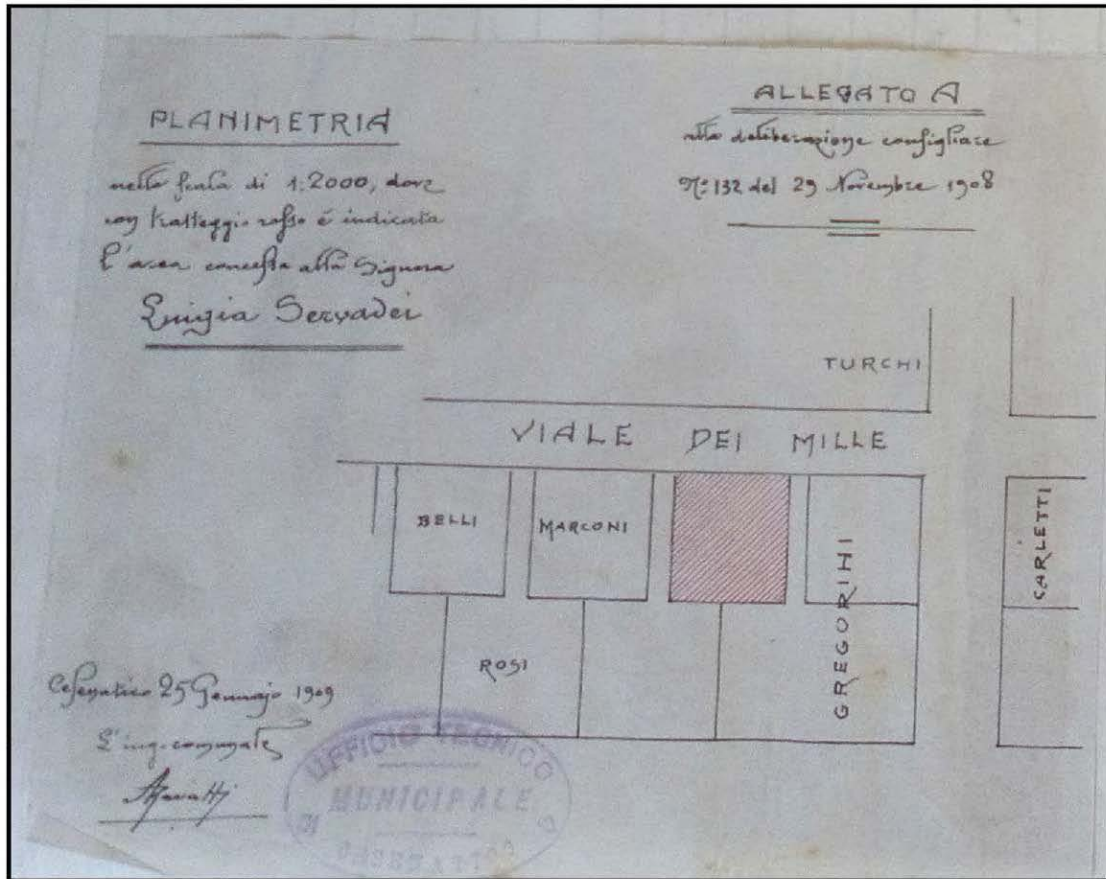 PLANIMETRIA
nella scala di 1:2000, dove
con tratteggio rosso é indicata
l'area concessa alla Signora
Luigia Servadei
ALLEGATO A
alla deliberazione consigliare
N.º 132 del 29 Novembre 1908
TURCHI
VIALE DEI MILLE
BELLI
MARCONI
GREGORINI
CARLETTI
ROSI
Cesenatico 25 Gennajo 1909
L'ing. comunale
UFFICIO TECNICO
MUNICIPALE
DI